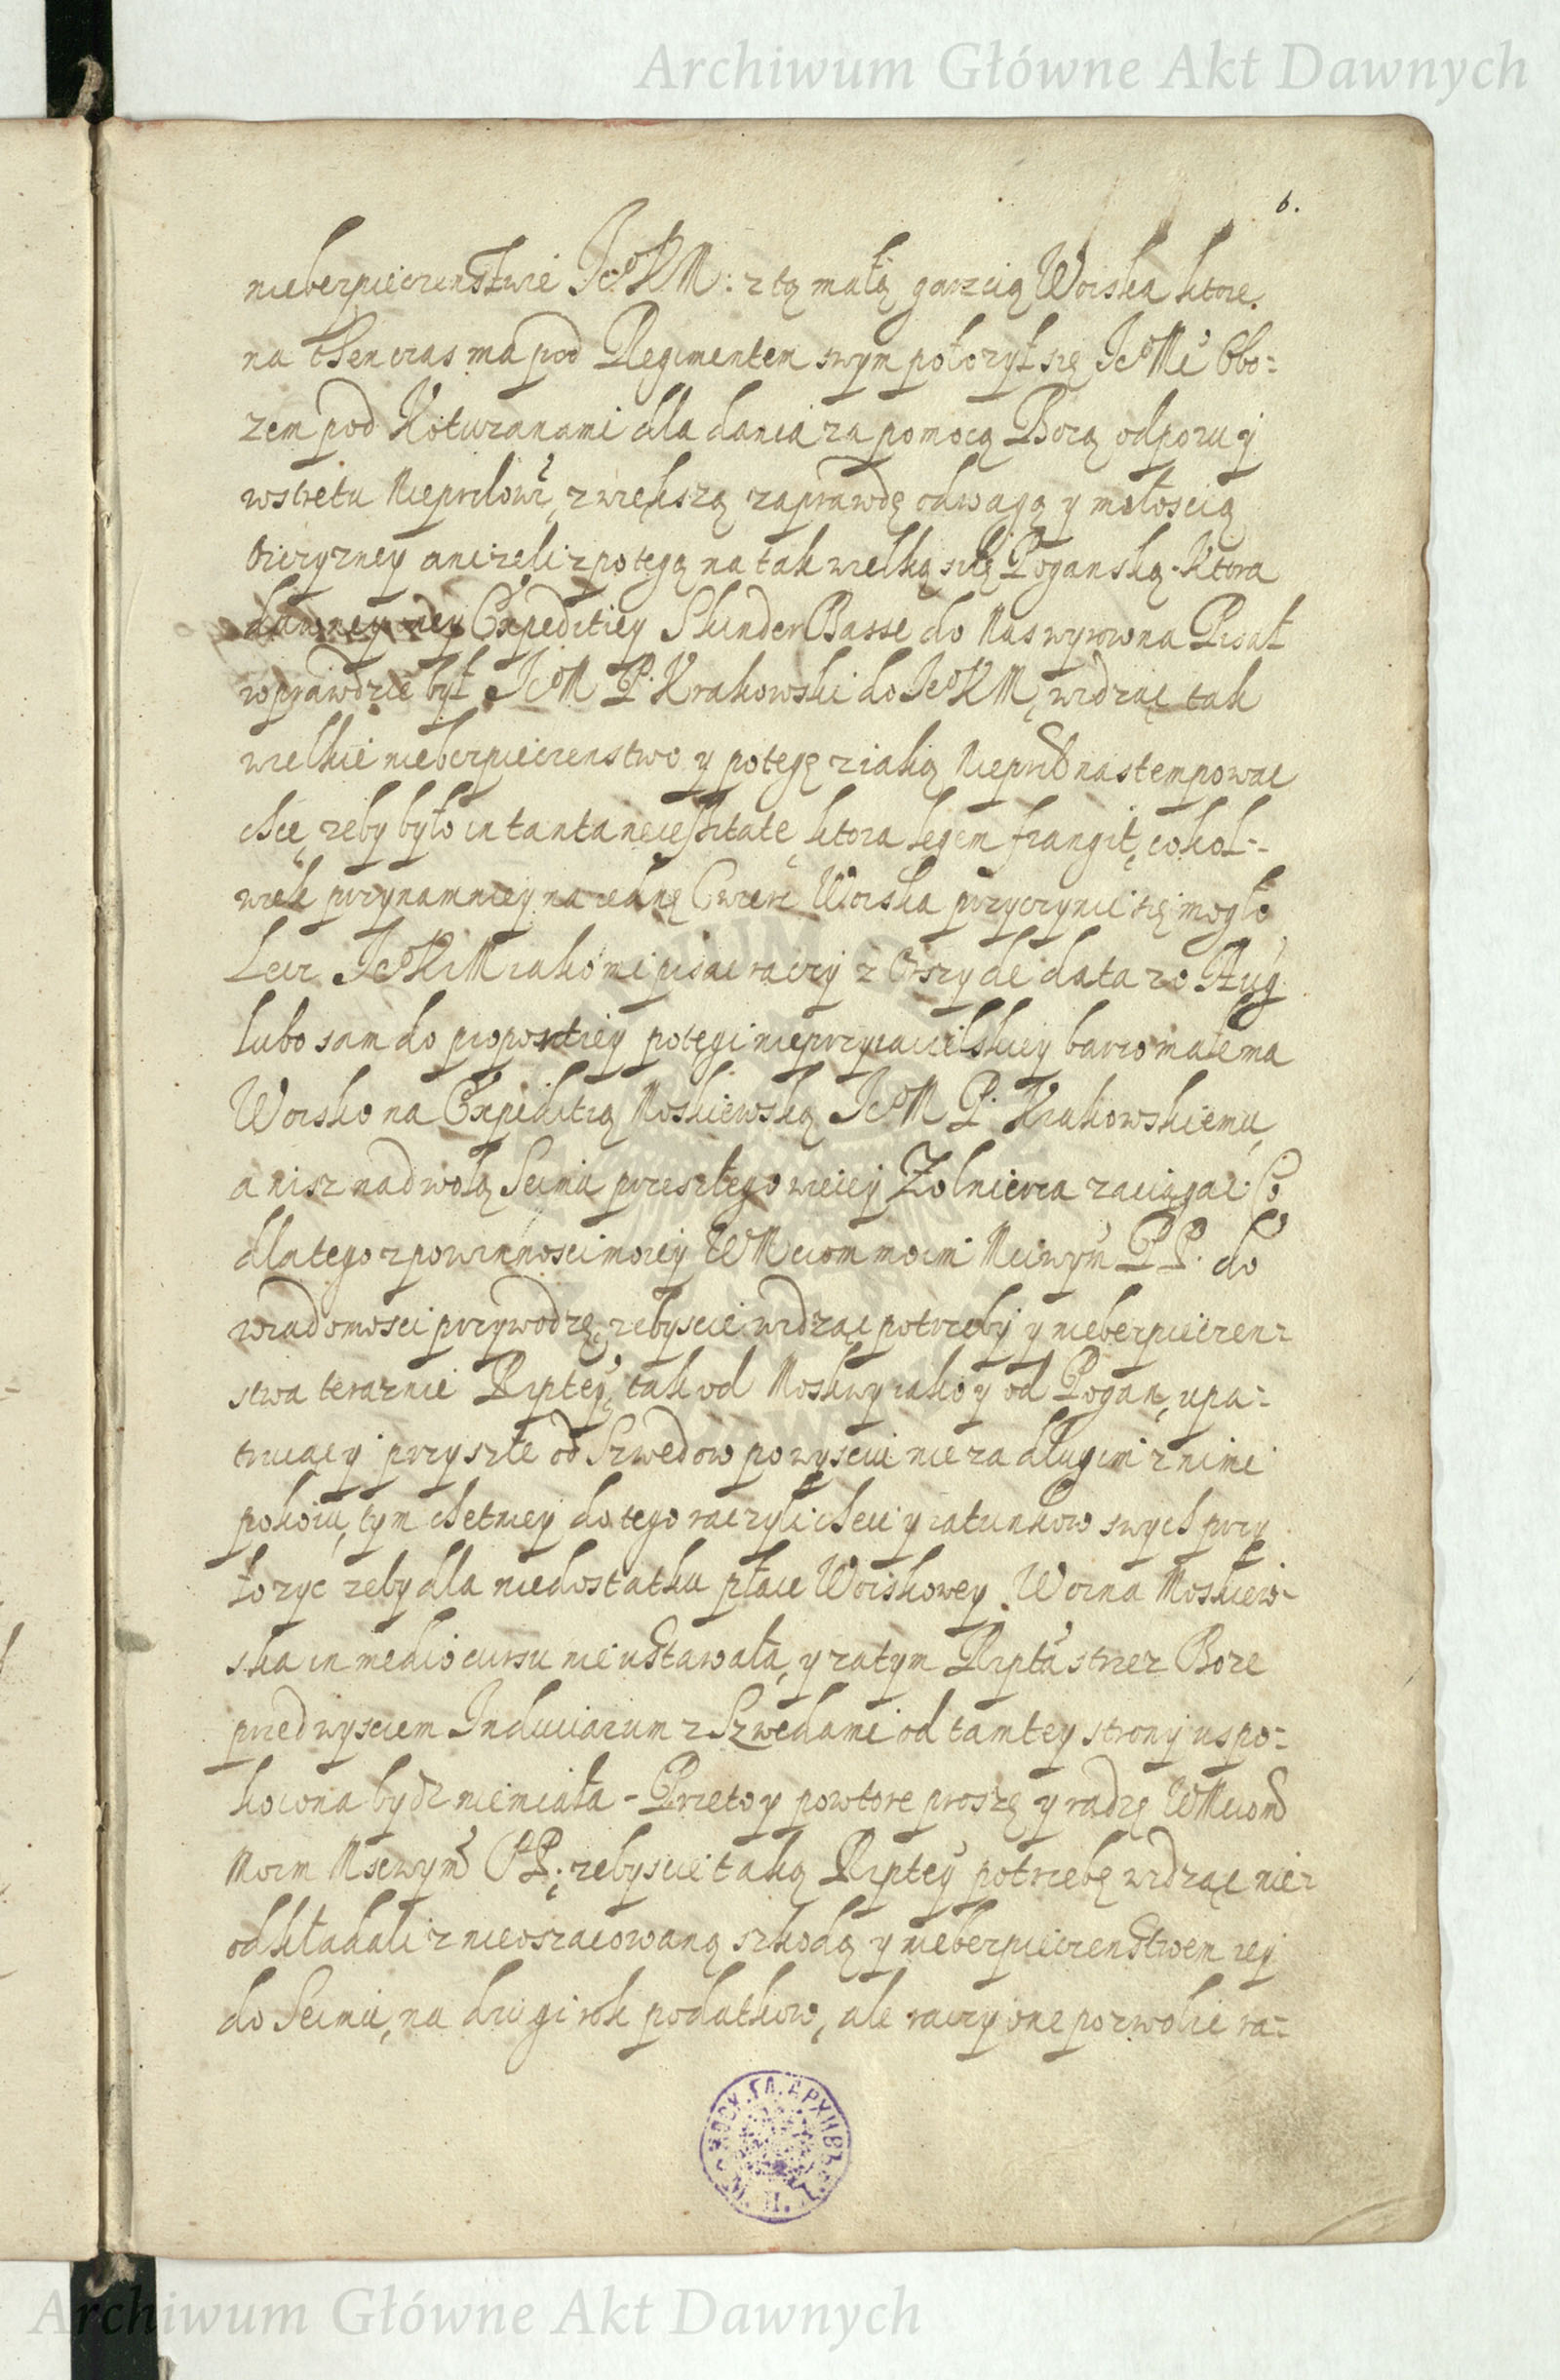 Archiwum Główne Akt Dawnych
6.
niebezpieczenstwie JeoKM: z tą małą garzcią Woiska ktore
na thenczas ma pod Regimentem swym połozył się JeoMć Obo=
zem pod Kotuzanami dla dania za pomocą Bozą odporu y
wstrętu Nieprzlowi, z większą zaprawdę odwagą y miłoscią
Oiczyzney anizeli z potegą na tak wielką siłę Poganską. Ktora
dawney Expeditiey Skinder Basse do Nas wyrowna Pisał
wprawdzie był JeoM P. Krakowski do JeoKM, widząc tak
wielkie niebezpieczenstwo y potegę z iaką Nieprzl nastempowac
chce, zeby było in tanta necessitate, ktora legem frangit, cokol=
wiek przynamniey na iednę Cwierc Woiska przyczynic się mogło
Lecz JeoKrM iako mi pisac raczy z Orszy de data 20 Aug
lubo sam do proportiey potęgi nieprzyiacielskiey barzo małe ma
Woisko na Expeditią Moskiewską JeoM P. Krakowskiemu,
a nisz nad wolą Seimu przeszłego więcej Zolnierza zaciągac. Co
dlatego z powinnosci moiey WMciom moim Mciwym PP. do
wiadomosci przywodzę, zebyscie widząc potrzeby y niebezpieczen=
stwa teraznie Rzptey, tak od Moskwy iako y od Pogan, upa=
truiąc y przyszłe od Szwedow po wysciu nie za długim z nimi
pokoiu, tym chetniey do tego raczyli checi y ratunkow swych przy
łozyc zeby dla niedostatku płace Woiskowey. Woina Moskiew=
ska in medio cursu nie ustawała, y zatym Rzpta strzez Boze
przed wysciem Induciarum z Szwedami od tamtey strony uspo=
koiona bydz niemiała - Przeto y powtore proszę y radzę WMciom
Moim Msciwym PP. zebyscie taką Rzptey potrzebę widząc nie=
odkładali z nieoszacowaną szkodą y niebezpieczenstwem iey
do Seimu, na drugi rok podatkow, ale raczy one pozwolic ra=
Archiwum Główne Akt Dawnych